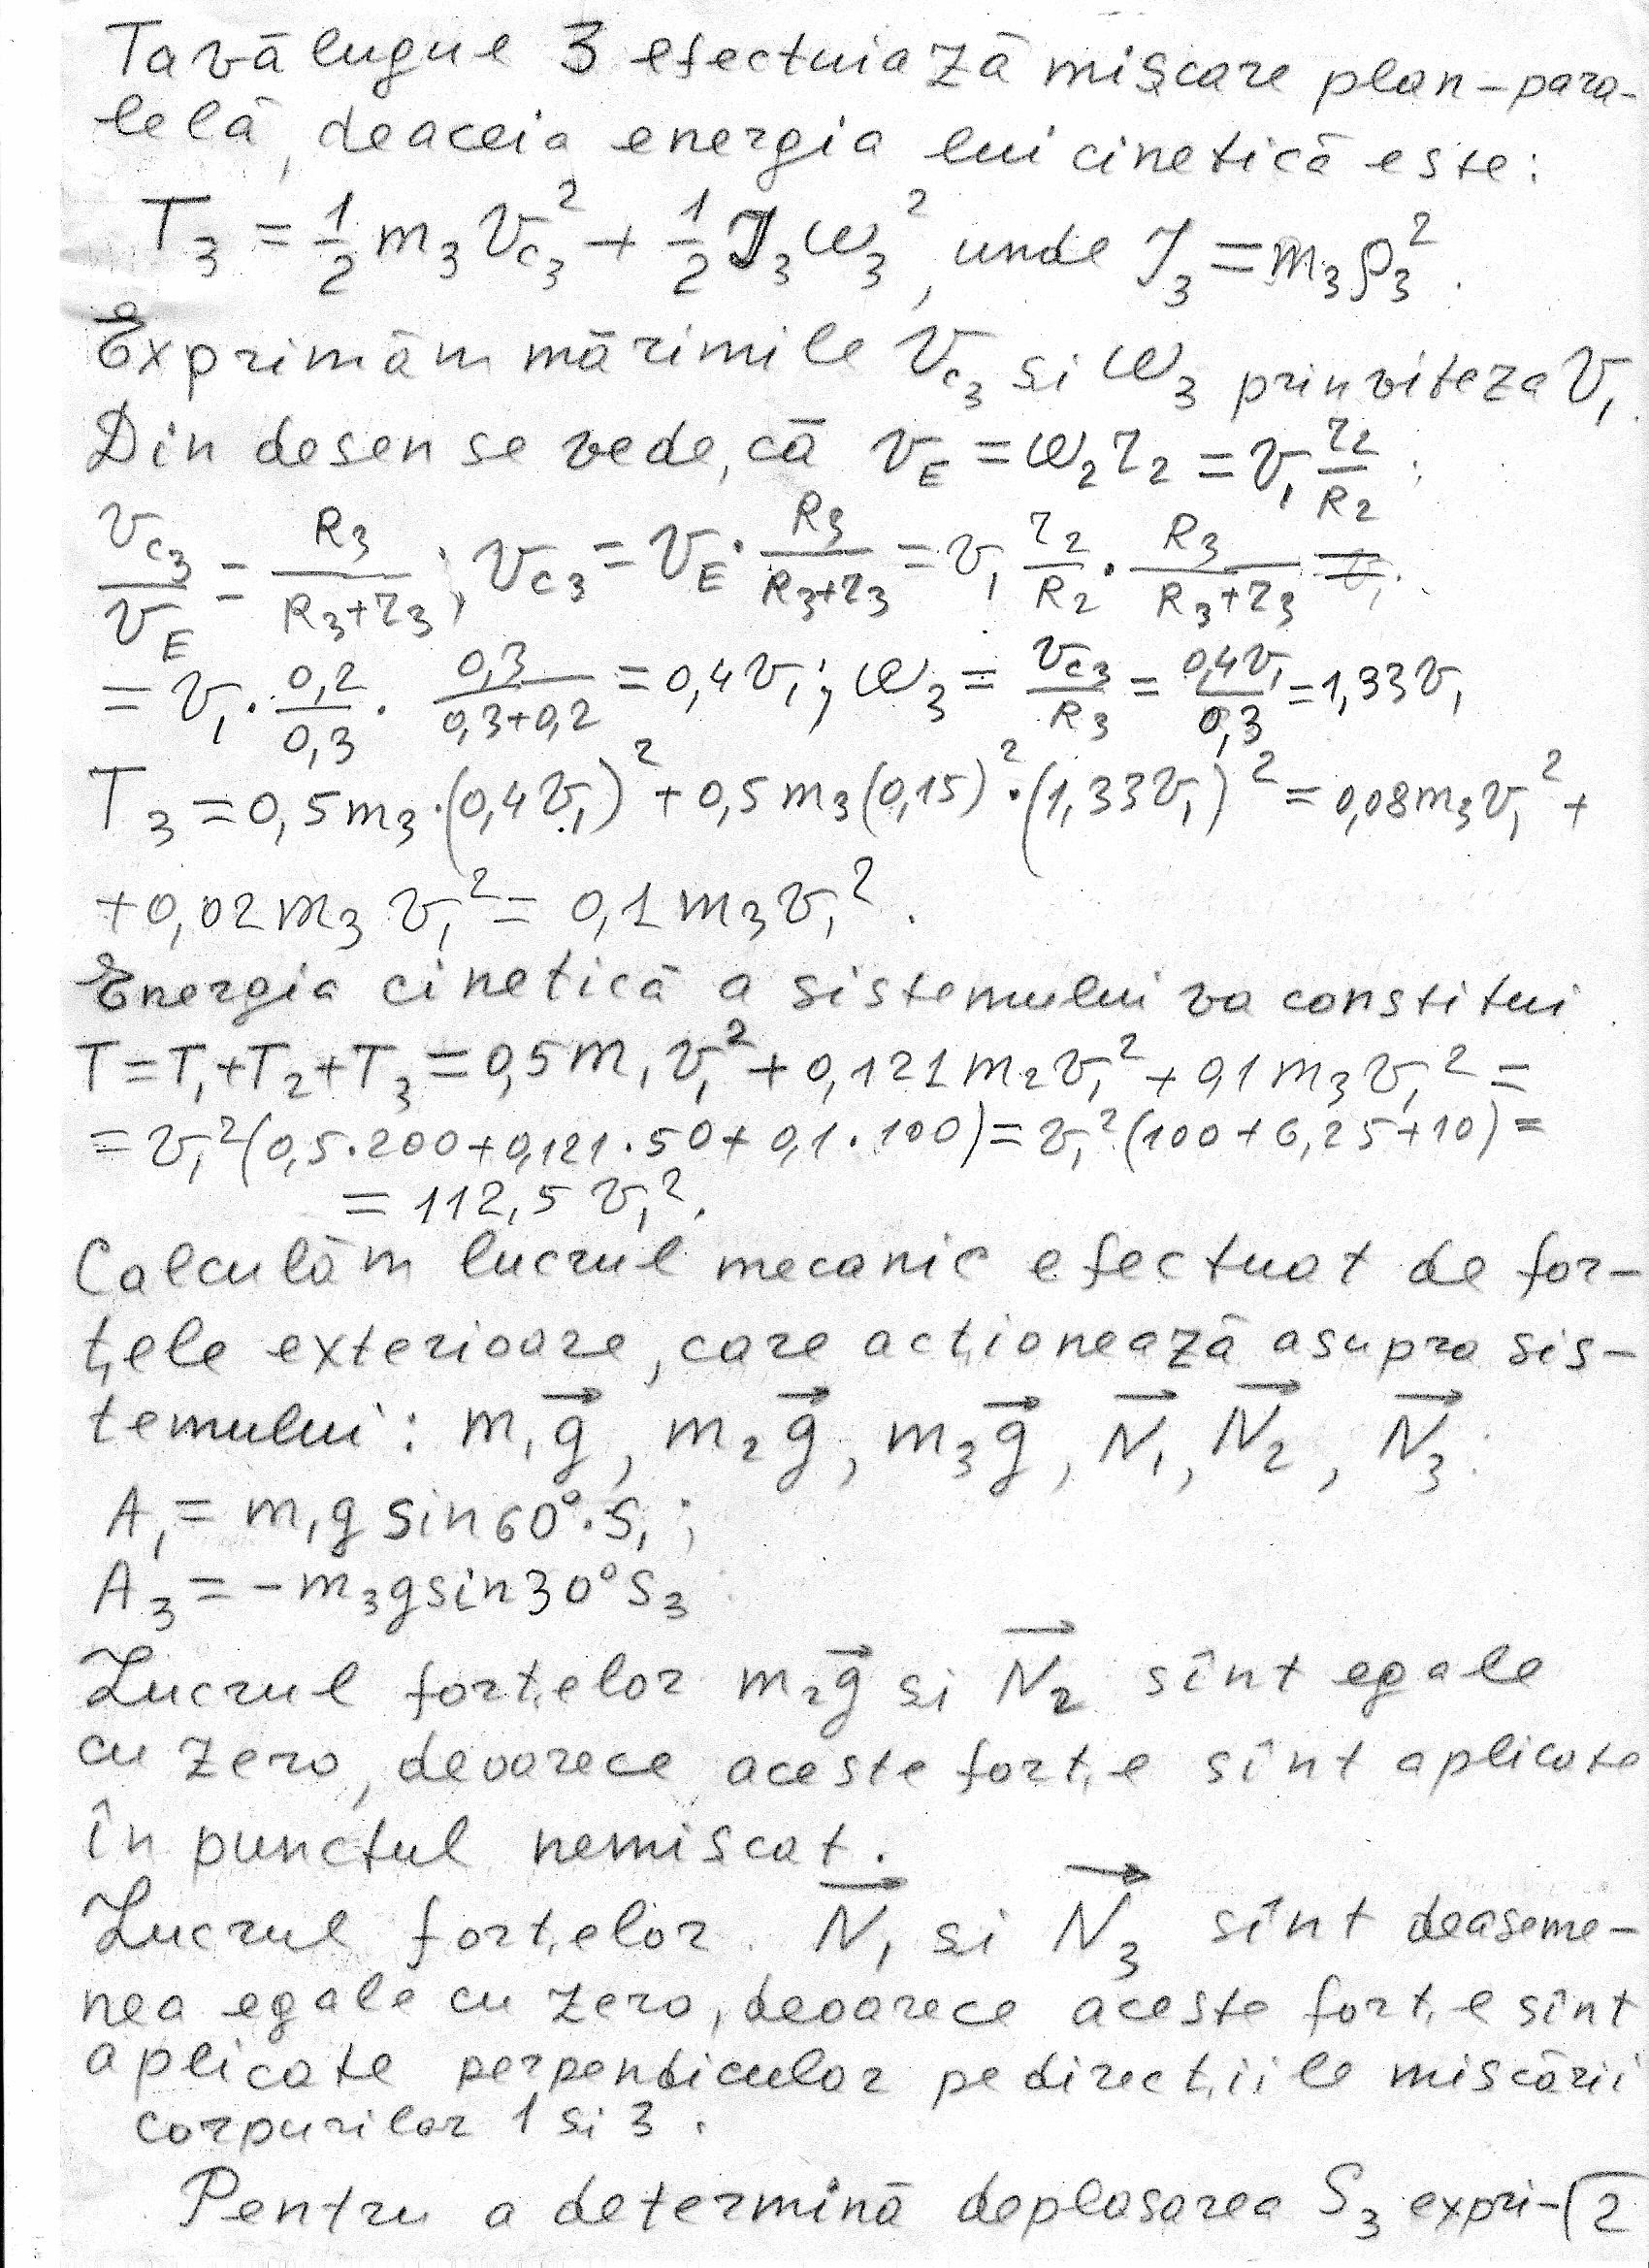 Tavălugul 3 efectuiază mișcare plan-para-
lelă, deaceia energia lui cinetică este:
T₃ = 1/2 m₃ V_c₃² + 1/2 J₃ω₃², unde J₃ = m₃ρ₃².
Exprimăm mărimile V_c₃ si ω₃ prin viteza V₁.
Din desen se vede, că v_E = ω₂r₂ = v₁ r₂/R₂;
v_c₃/v_E = R₃/(R₃+r₃); v_c₃ = v_E · R₃/(R₃+r₃) = v₁ r₂/R₂ · R₃/(R₃+r₃) =
= v₁ · 0,2/0,3 · 0,3/(0,3+0,2) = 0,4v₁; ω₃ = v_c₃/R₃ = 0,4v₁/0,3 = 1,33v₁
T₃ = 0,5m₃·(0,4v₁)² + 0,5m₃(0,15)²·(1,33v₁)² = 0,08m₃v₁² +
+0,02m₃v₁² = 0,1m₃v₁².
Energia cinetică a sistemului va constitui
T=T₁+T₂+T₃ = 0,5m₁v₁² + 0,121m₂v₁² + 0,1m₃v₁² =
= v₁²(0,5·200+0,121·50+0,1·100) = v₁²(100+6,25+10) =
= 112,5 v₁².
Calculăm lucrul mecanic efectuat de for-
țele exterioare, care acționează asupra sis-
temului: m₁g⃗, m₂g⃗, m₃g⃗, N⃗₁, N⃗₂, N⃗₃.
A₁ = m₁g sin60°·S₁;
A₃ = -m₃gsin30°S₃
Lucrul forțelor m₂g⃗ si N⃗₂ sînt egale
cu zero, deoarece aceste forțe sînt aplicate
în punctul nemiscat.
Lucrul forțelor N⃗₁ si N⃗₃ sînt deaseme-
nea egale cu zero, deoarece aceste forțe sînt
aplicate perpendicular pe direcțiile miscării
corpurilor 1 si 3.
Pentru a determină deplasarea S₃ expri- 2